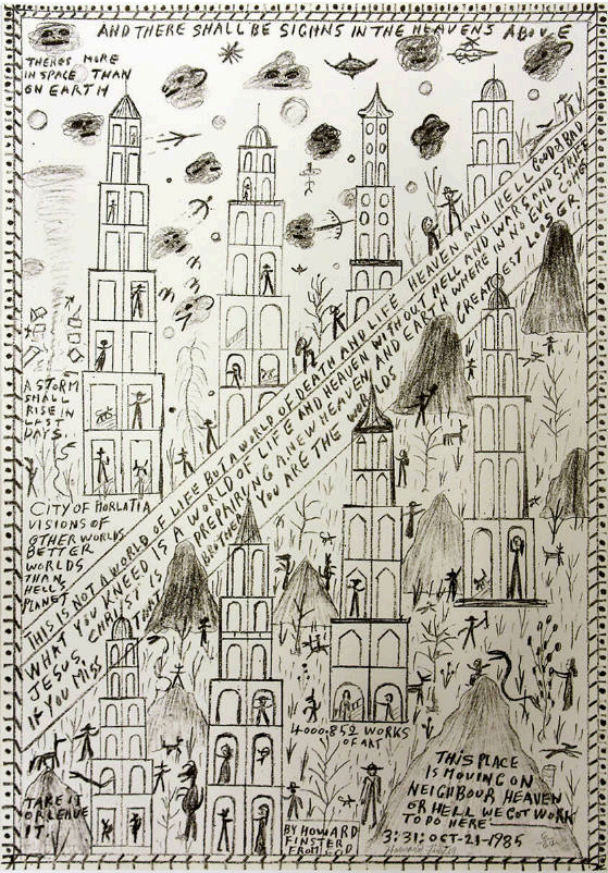 AND THERE SHALL BE SIGHNS IN THE HEAVENS ABOVE
THERES MORE
IN SPACE THAN
ON EARTH
A STORM
SHALL
RISE IN
LAST
DAYS.
CITY OF HORLATIA
VISIONS OF
OTHER WORLDS
BETTER
WORLDS
THAN
HELLS
PLANET
THIS IS NOT A WORLD OF LIFE BUT A WORLD OF DEATH AND LIFE HEAVEN AND HELL GOOD & BAD
WHAT YOU KNEED IS A WORLD OF LIFE AND HEAVEN WITHOUT HELL AND WARS AND STRIFE
JESUS CHRIST IS PREPAIRING A NEW HEAVEN, AND EARTH WHERE IN NO EVIL COMES
IF YOU MISS THAT BROTHER YOU ARE THE WORLDS GREATEST LOOSER.
TAKE IT
OR LEAVE
IT.
4000.852 WORKS
OF ART
BY HOWARD
FINSTER
FROM GOD
THIS PLACE
IS MOVING ON
NEIGHBOUR HEAVEN
OR HELL WE GOT WORK
TO DO HERE
3:31: OCT-21-1985